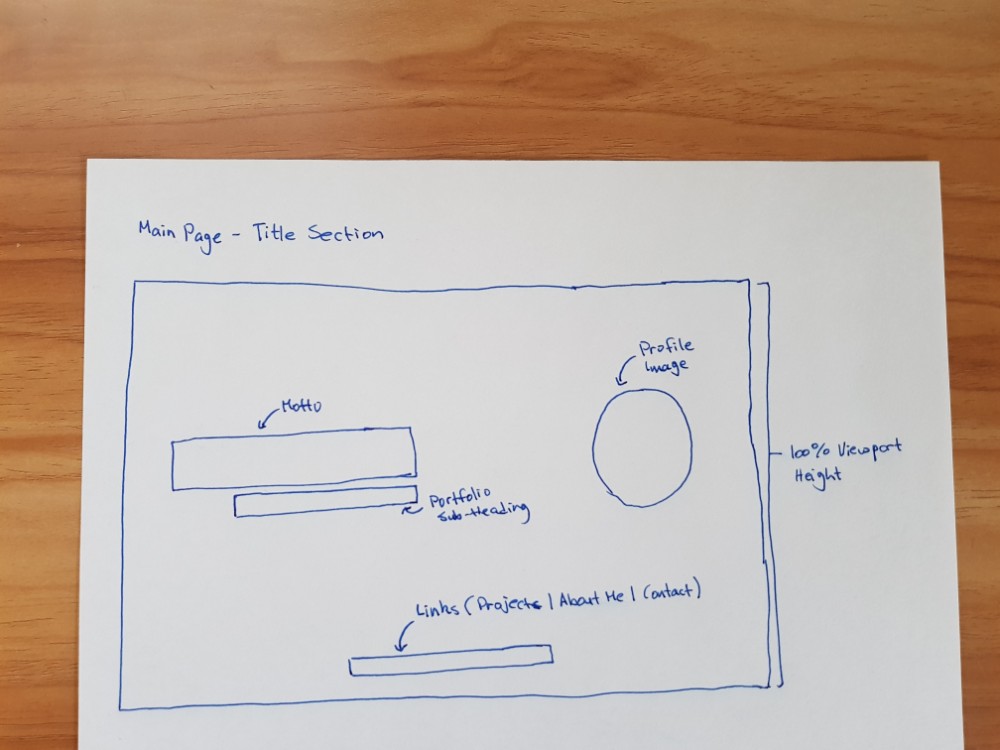 Main Page - Title Section
Profile
Image
Motto
100% Viewport
Height
Portfolio
Sub-Heading
Links (Projects | About Me | Contact)